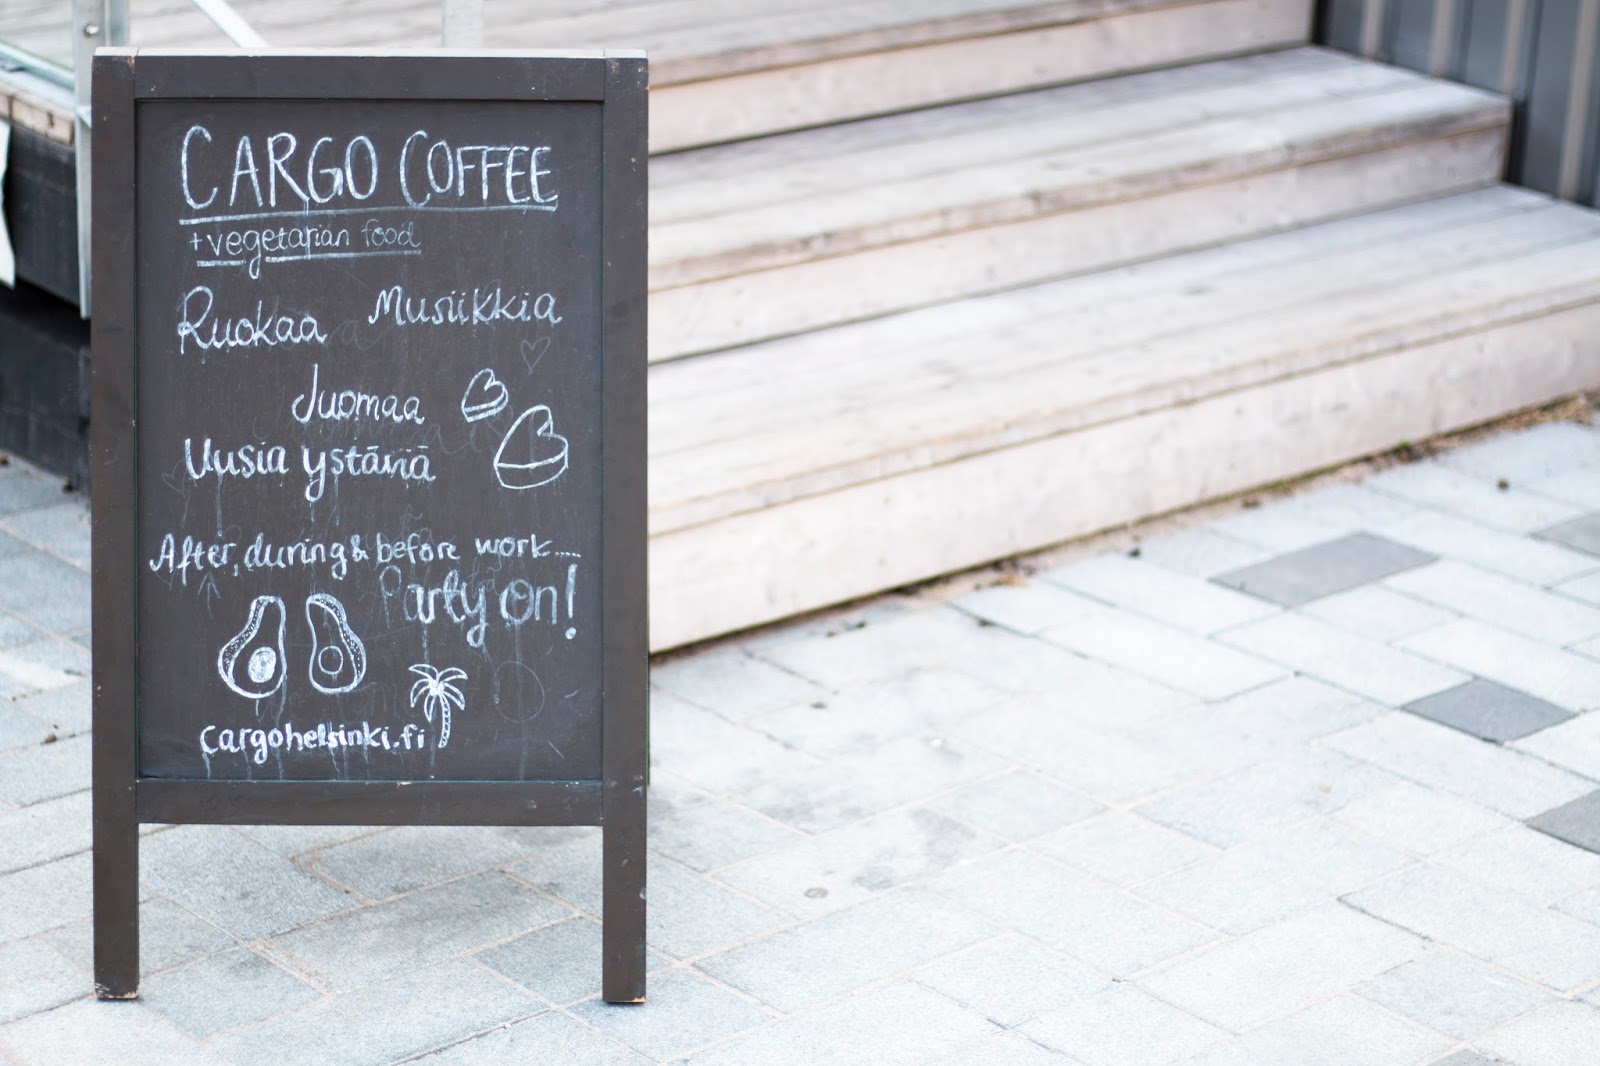 CARGO COFFEE
+ vegetarian food
Ruokaa Musiikkia
Juomaa
Uusia ystäviä
After, during & before work....
Party on!
cargohelsinki.fi